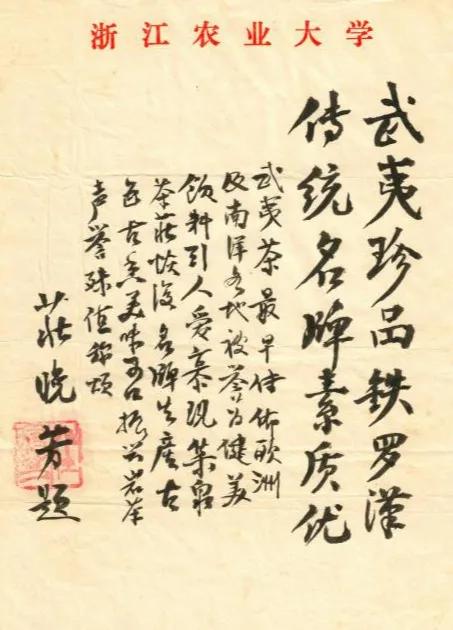 浙江农业大学
武夷珍品铁罗汉
传统名牌素质优
武夷茶最早传佈欧洲
及南洋各地被誉为健美
饮料引人爱慕现集泉
茶莊恢复名牌生产古
色古香美味可口振兴岩茶
声誉殊值称颂
莊晚芳题